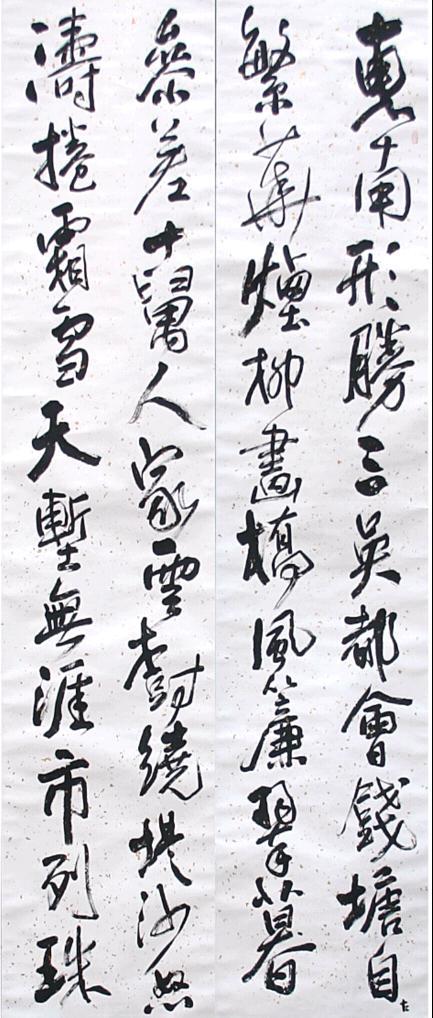 東南形勝三吳都會錢塘自
繁華煙柳畫橋風簾翠幕
參差十萬人家雲樹繞堤沙怒
濤捲霜雪天塹無涯市列珠